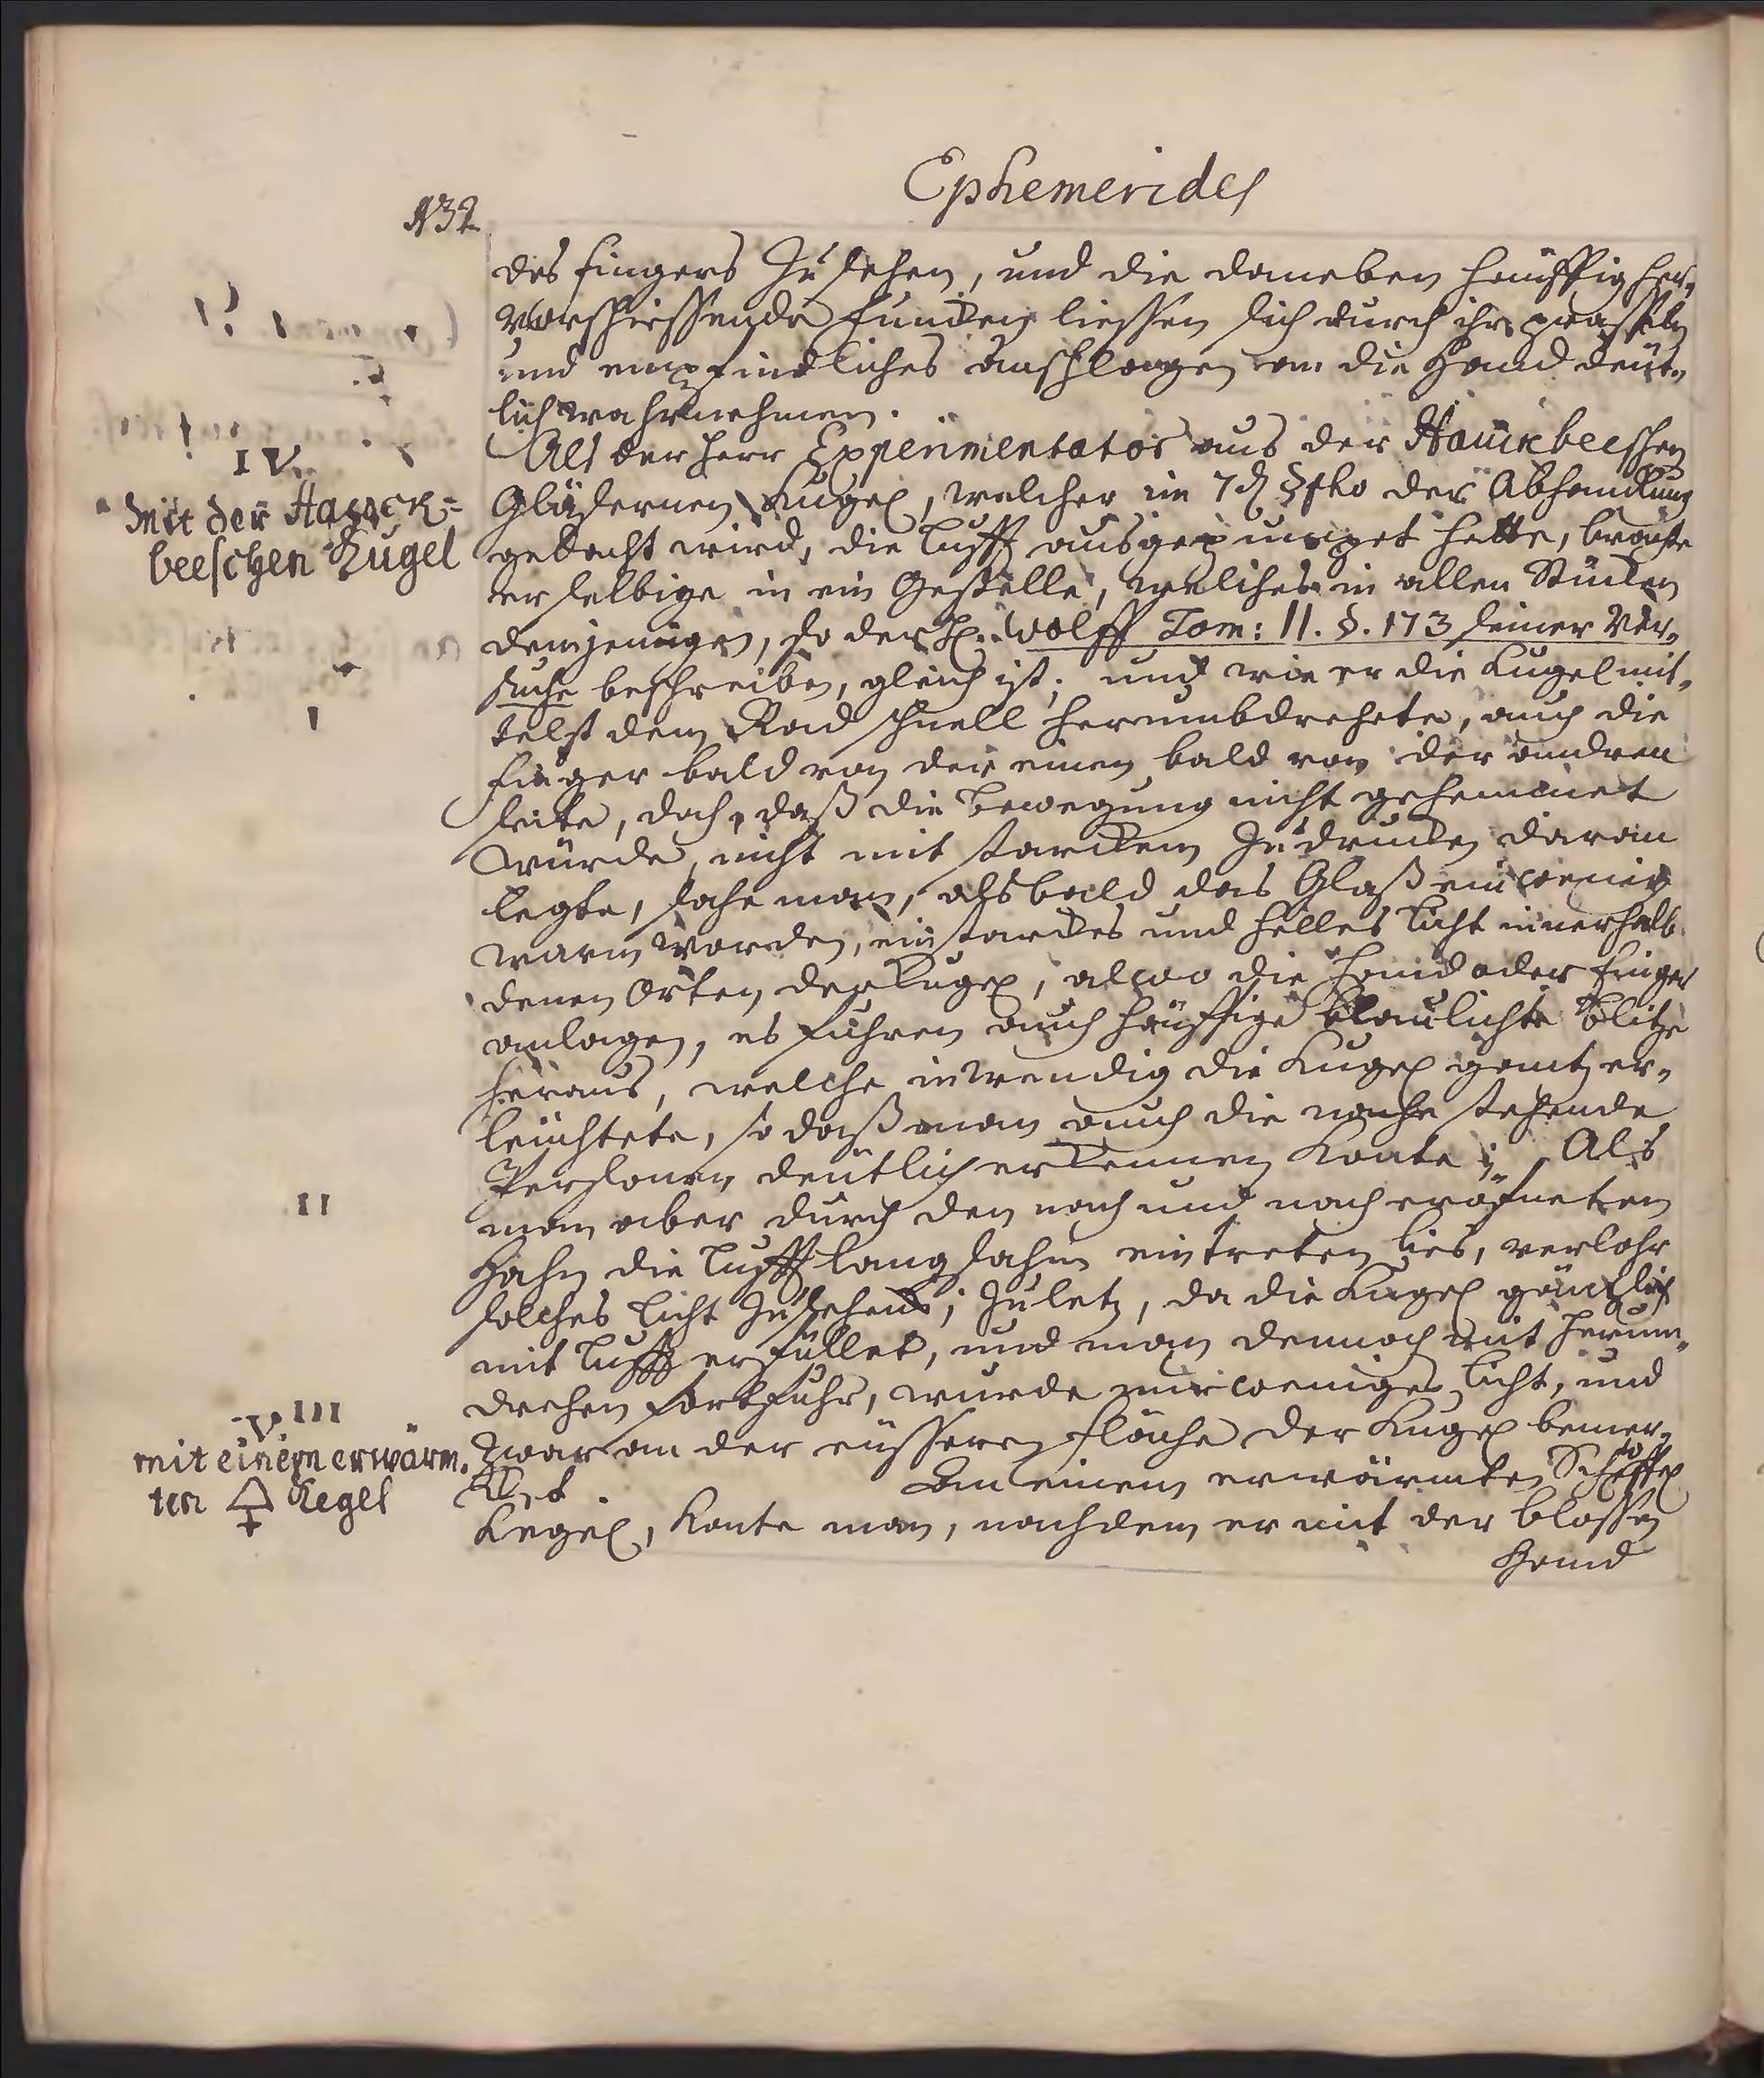 Ephemerides
432
des fingers zu sehen, und die daneben häuffig her„
vorschiessende funcken liessen sich durch ihr prasseln
und empfindliches anschlagen an die Hand deut„
lich wahrnehmen.
Als der Herr Experimentator aus der Hauckbeeschen
IV.
Mit der Hauck=
beeschen Kugel
Gläsernen Kugel, welcher im 7den §pho der Abhandlung
gedacht wird, die Lufft ausgepumpet hatte, brachte
er selbige in ein Gestelle, welches in allen Stücken
demjenigen, so der H. Wolff Tom: II. §. 173 seiner Ver„
suche beschreiben, gleich ist; und wie er die Kugel mit„
I
telst dem Rad schnell herumbdrehete, auch die
finger bald von der einen bald von der andren
seite, doch, daß die Bewegung nicht gehemmet
würde, nicht mit starckem Zudrucken daran
legte, sahe man, alsbald das Glaß ein wenig
warm worden, ein starckes und helles Licht innerhalb
denen Orten der Kugel, alwo die Hand oder finger
anlagen, es fuhren auch häuffige blaulichte Blitze
heraus, welche inwendig die Kugel gantz er„
leuchtete, so daß man auch die nahe stehende
Personen deutlich erkennen konte; Als
II
man aber durch den nach und nach eröfneten
Hahn die Lufft langsahm eintreten lies, verlohr
solches Licht zusehends; zuletz, da die Kugel gäntzlich
mit Lufft erfüllet, und man dennoch mit herum„
drehen fortfuhr, wurde nur weniges Licht, und
III
V.
mit einem erwärm„
ten 🜍 Kegel
zwar an der eussern fläche der Kugel bemer„
cket. An einem erwärmten Schwffel
Kegel, konte man, nachdem er mit der blossen
Hand